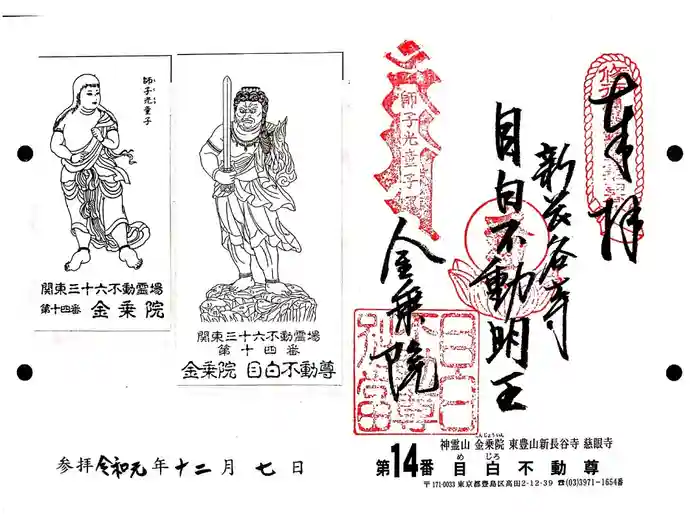 奉拝
新長谷寺
目白不動明王
金乗院
師子光童子
目白不動尊別當
師子光童子
関東三十六不動霊場
第十四番 金乗院
関東三十六不動霊場
第十四番
金乗院 目白不動尊
参拝令和元年十二月七日
こんじょういん
神霊山 金乗院 東豊山新長谷寺 慈眼寺
めじろ
第14番 目白不動尊
〒171-0033 東京都豊島区高田2-12-39 ☎(03)3971-1654番